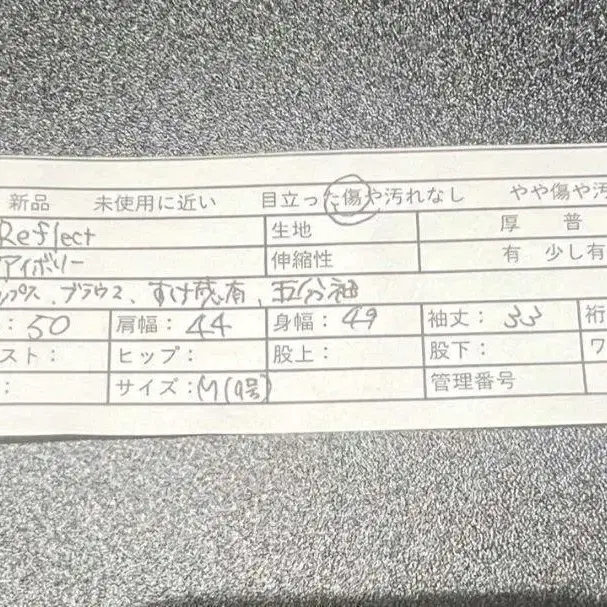 新品 未使用に近い 目立った傷や汚れなし やや傷や汚
Reflect 生地 厚 普
アイボリー 伸縮性 有 少し有
ップス、ブラウス、すけ感有、五分袖
: 50 肩幅: 44 身幅: 49 袖丈: 33 裄
スト: ヒップ: 股上: 股下: ワ
: サイズ: M(9号) 管理番号